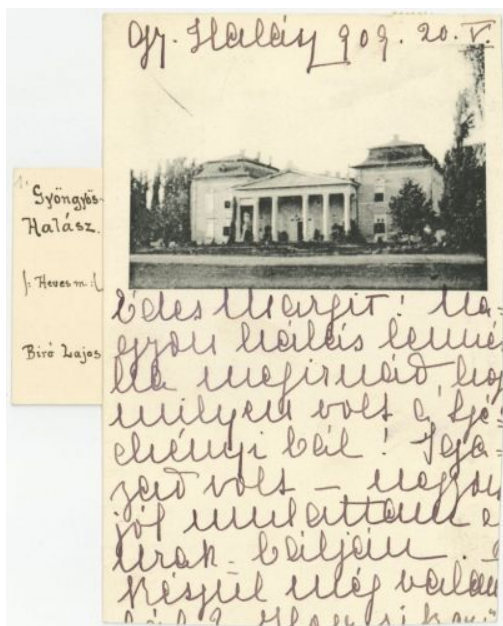 Gy. Halász 909. 20. V.
1.
Gyöngyös-
Halász.
/: Heves m :/
Biró Lajos
Édes Margit! Na-
gyon hálás lenné
ha megirnád, hog
milyen volt a Szé-
chényi bál! Iga-
zad volt – nagyon
jól mulattam a
urak bálján.
készül még valam